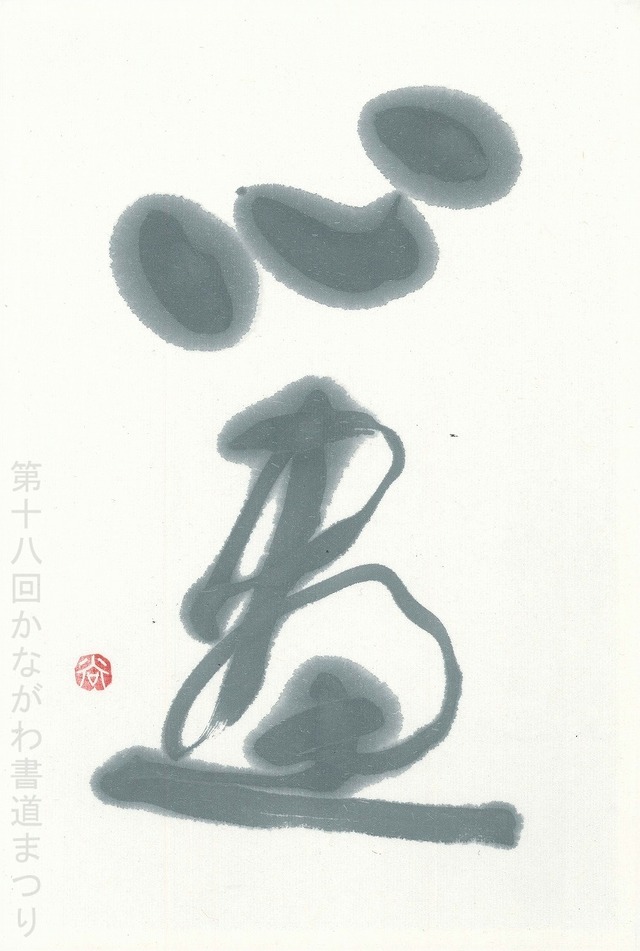 心畫
第十八回かながわ書道まつり